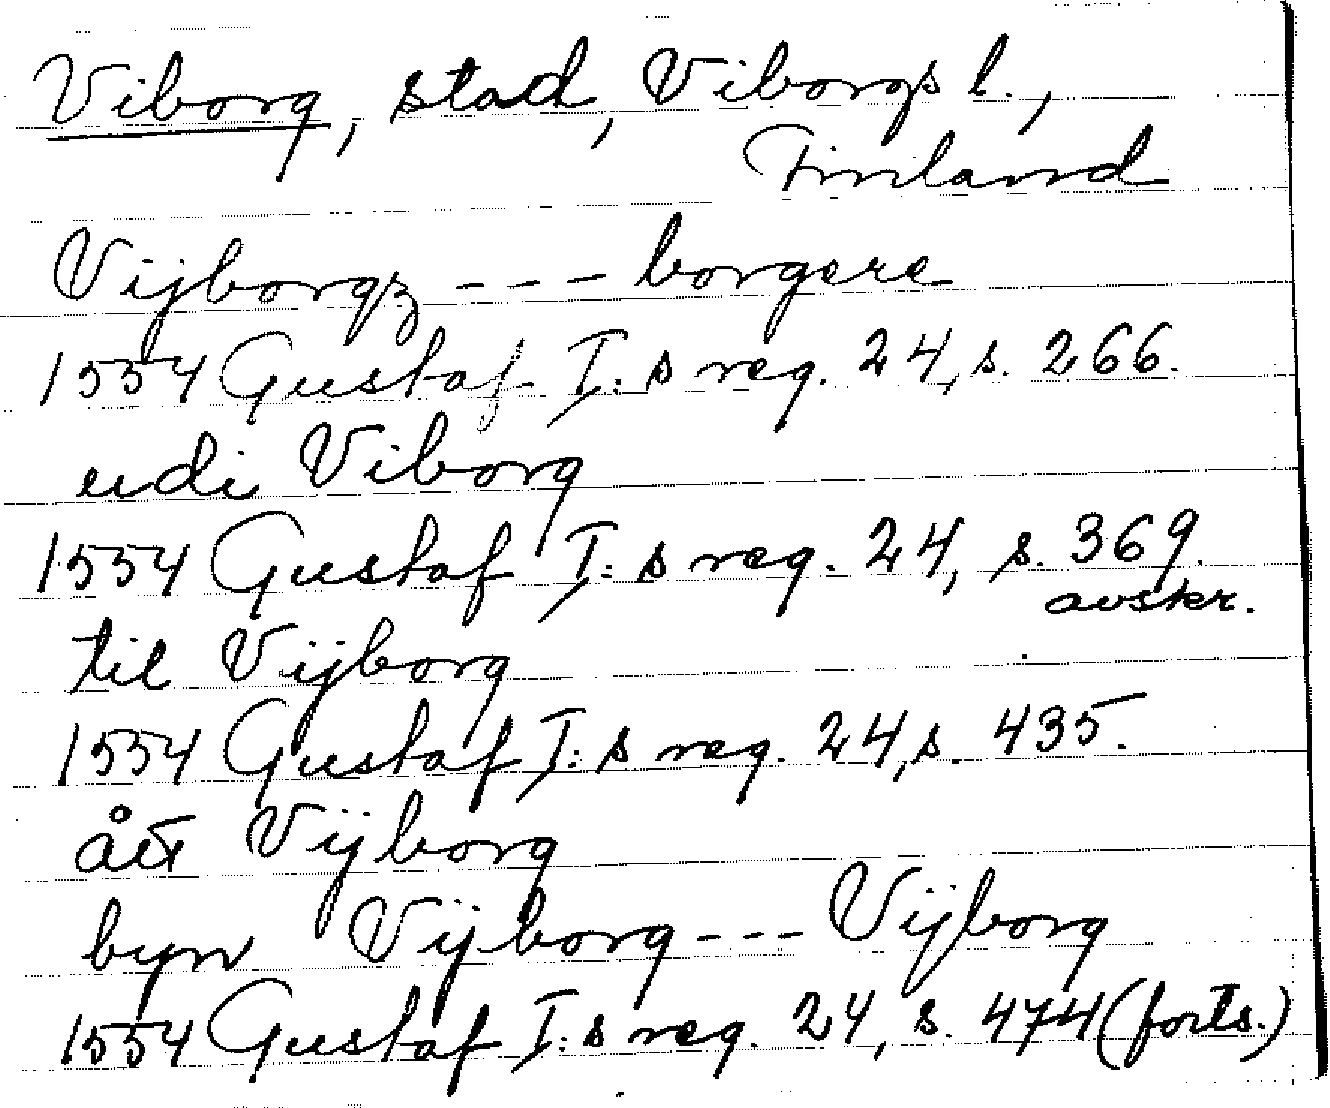 Viborg, stad, Viborgs l.,
Finland
Vijborgz --- borgere
1554 Gustaf I:s reg. 24, s. 266.
udi Viborg
1554 Gustaf I:s reg. 24, s. 369.
avskr.
til Vijborg
1554 Gustaf I:s reg. 24, s. 435.
ått Vijborg
byn Vijborg --- Vijborg
1554 Gustaf I:s reg. 24, s. 474 (forts.)